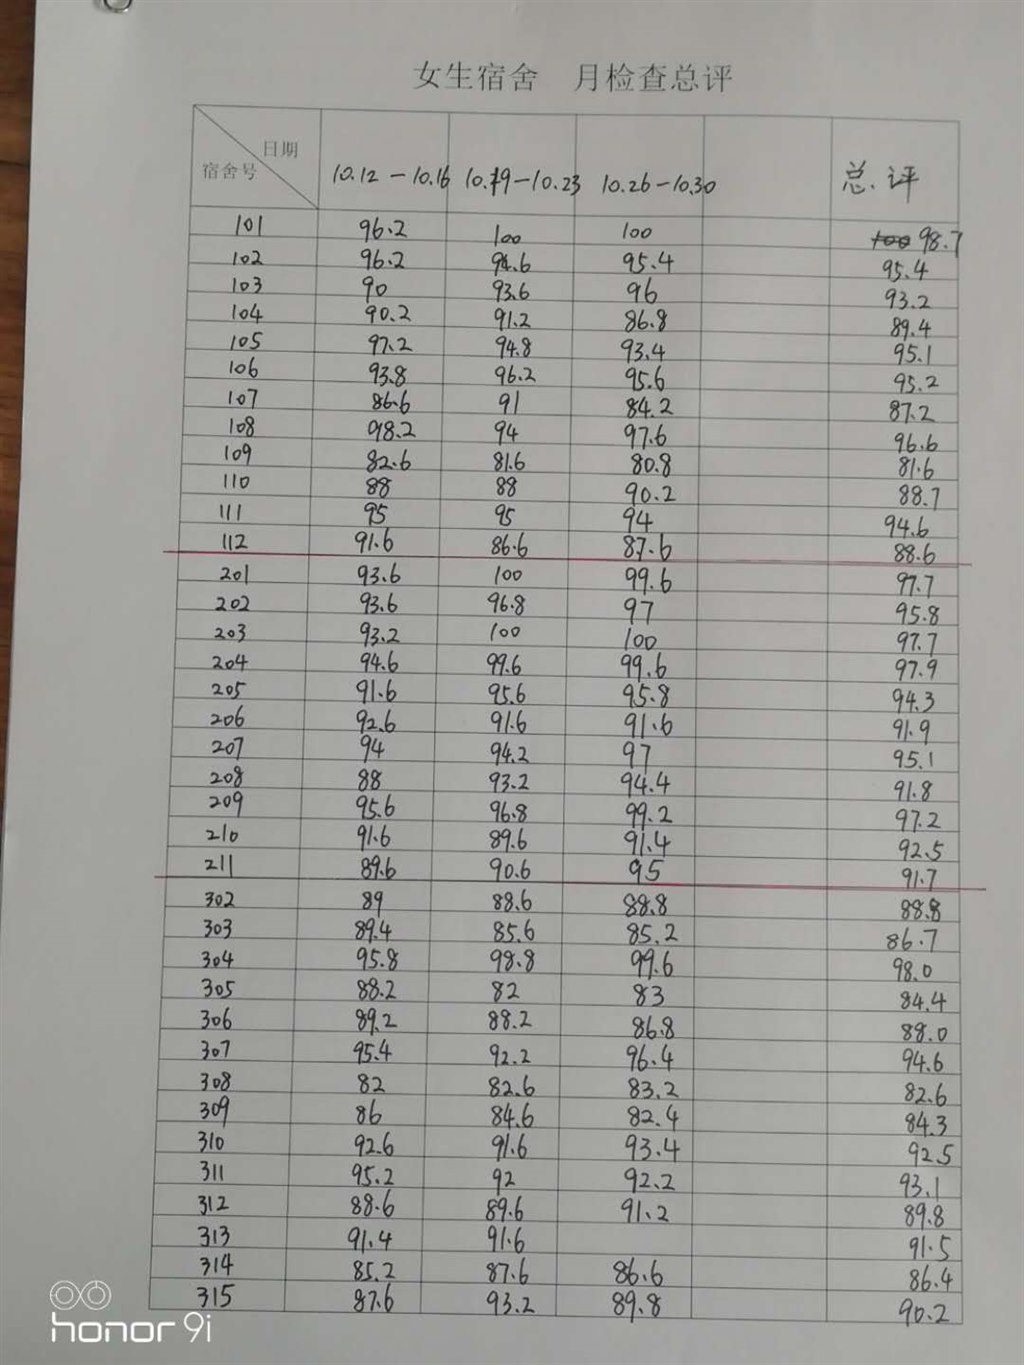 女生宿舍 月检查总评
日期
宿舍号 10.12-10.16 10.19-10.23 10.26-10.30 总.评
101 96.2 100 100 98.7
102 96.2 94.6 95.4 95.4
103 90 93.6 96 93.2
104 90.2 91.2 86.8 89.4
105 97.2 94.8 93.4 95.1
106 93.8 96.2 95.6 95.2
107 86.6 91 84.2 87.2
108 98.2 94 97.6 96.6
109 82.6 81.6 80.8 81.6
110 88 88 90.2 88.7
111 95 95 94 94.6
112 91.6 86.6 87.6 88.6
201 93.6 100 99.6 97.7
202 93.6 96.8 97 95.8
203 93.2 100 100 97.7
204 94.6 99.6 99.6 97.9
205 91.6 95.6 95.8 94.3
206 92.6 91.6 91.6 91.9
207 94 94.2 97 95.1
208 88 93.2 94.4 91.8
209 95.6 96.8 99.2 97.2
210 91.6 89.6 91.4 92.5
211 89.6 90.6 95 91.7
302 89 88.6 88.8 88.8
303 89.4 85.6 85.2 86.7
304 95.8 98.8 99.6 98.0
305 88.2 82 83 84.4
306 89.2 88.2 86.8 88.0
307 95.4 92.2 96.4 94.6
308 82 82.6 83.2 82.6
309 86 84.6 82.4 84.3
310 92.6 91.6 93.4 92.5
311 95.2 92 92.2 93.1
312 88.6 89.6 91.2 89.8
313 91.4 91.6 91.5
314 85.2 87.6 86.6 86.4
315 87.6 93.2 89.8 90.2
honor 9i